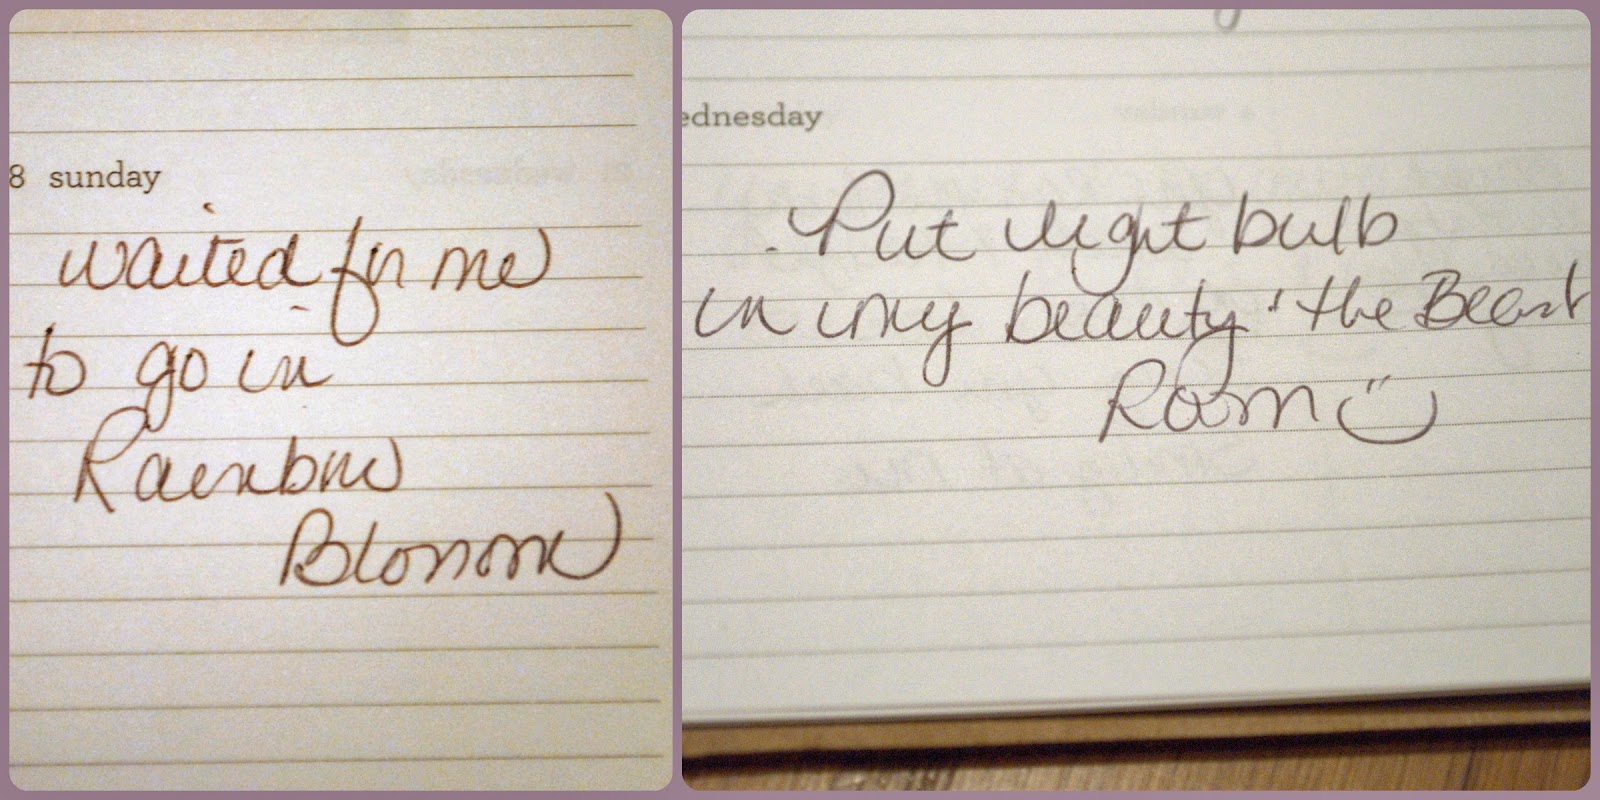 8 sunday
waited for me
to go in
Rainbow
Blossom
ednesday
Put light bulb
in my beauty + the Beast
Room ☺